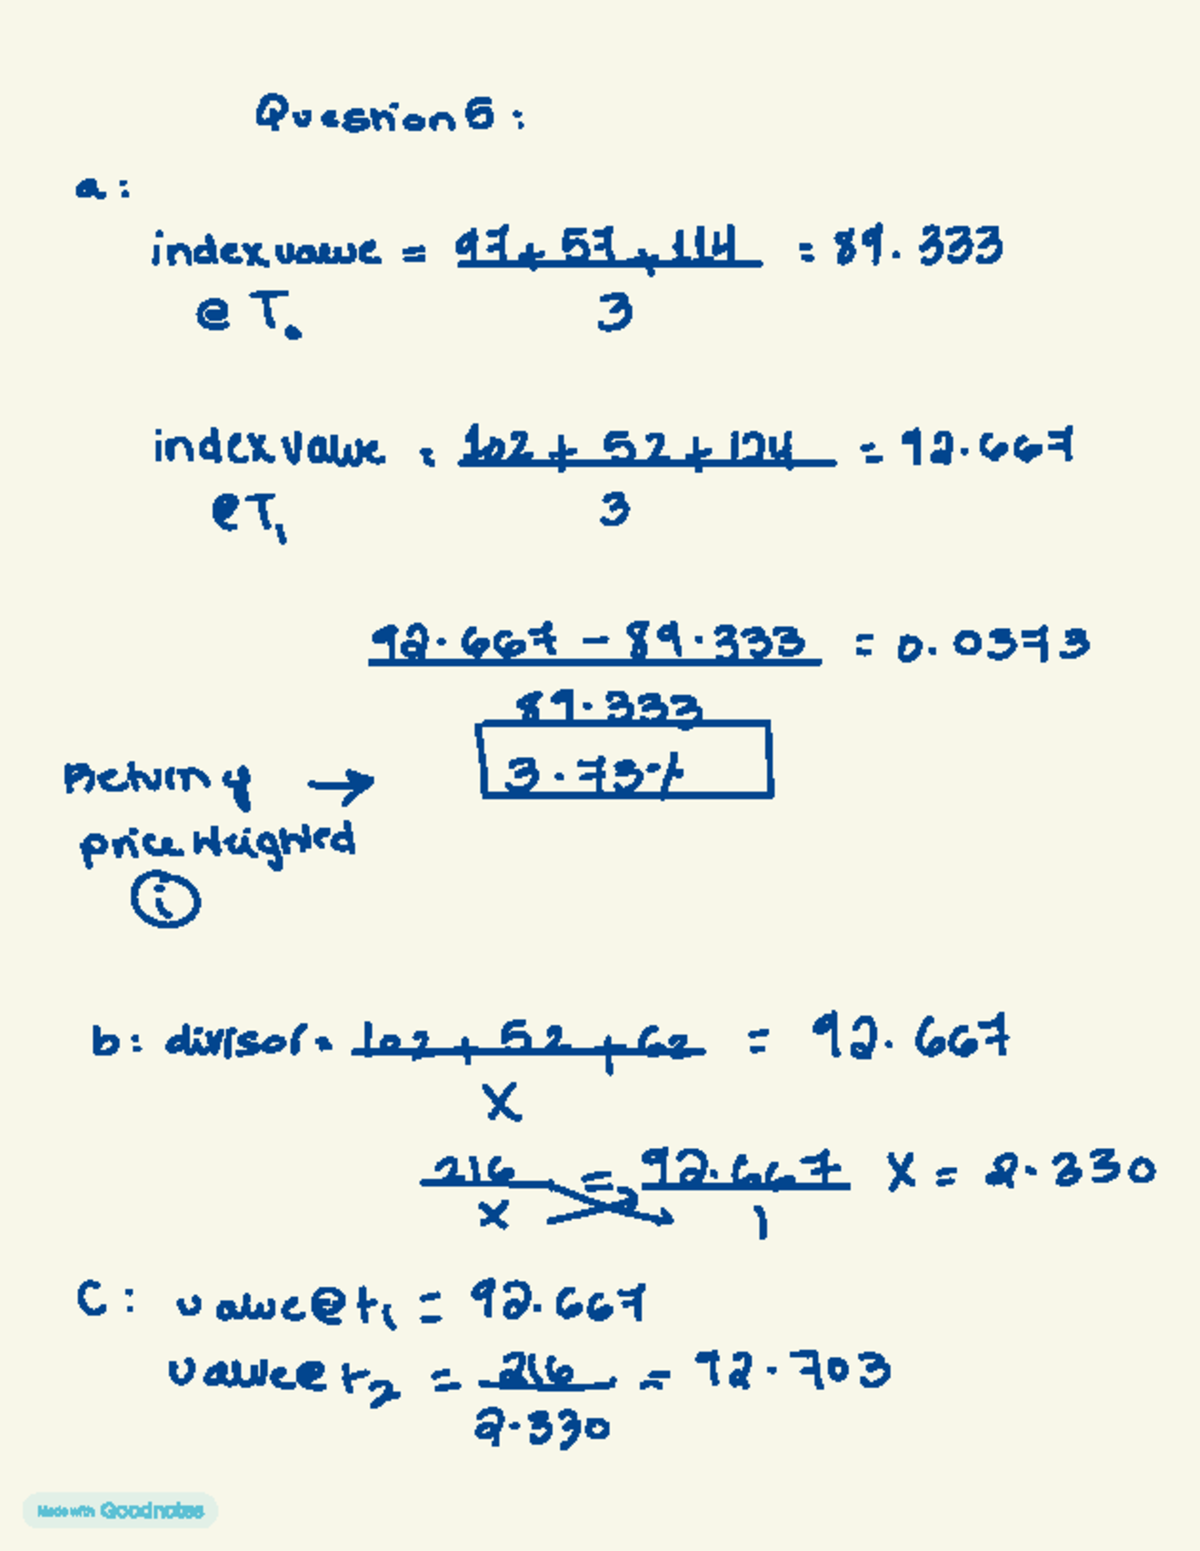 Question 5:
a:
index value = 97 + 57 + 114 = 89.333
@ T0 3
index value = 102 + 52 + 124 = 92.667
@ T1 3
92.667 - 89.333 = 0.0373
89.333
3.73%
Return of →
price weighted
i
b: divisor = 102 + 52 + 62 = 92.667
X
216 = 92.667 X = 2.330
X 1
C: value @ t1 = 92.667
value @ t2 = 216 = 92.703
2.330
Made with Goodnotes